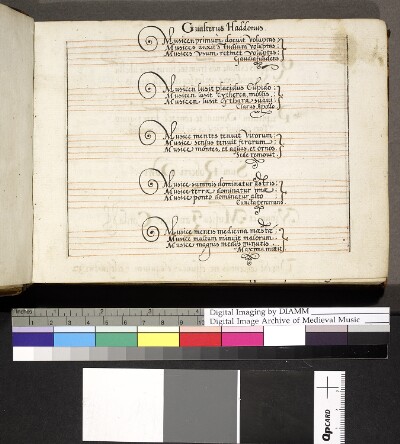 Gualterus Haddonus
Musicen primum docuit voluptas
Musices auxit studium voluptas
Musices usum retinet voluptas
Musicen lusit placidus Cupido
Musicen lusit Cytherea mollis
Musicen lusit cythara suavi
Clarus Apollo
Musice mentes tenuit virorum
Musice sensus tenuit ferarum
Musice montes, et aquas, et ornos
Sede removit
Musice summis dominatur astris
Musice terræ dominatur imæ
Musice ponto dominatur alto
Cuncta
Musice mentis medicina mæstæ
Musice multum minuit malorum
Musice magnis medijs minutis
Maxima
inches
1 2
Digital Imaging by DIAMM
Digital Image Archive of Medieval Music
QPCARD